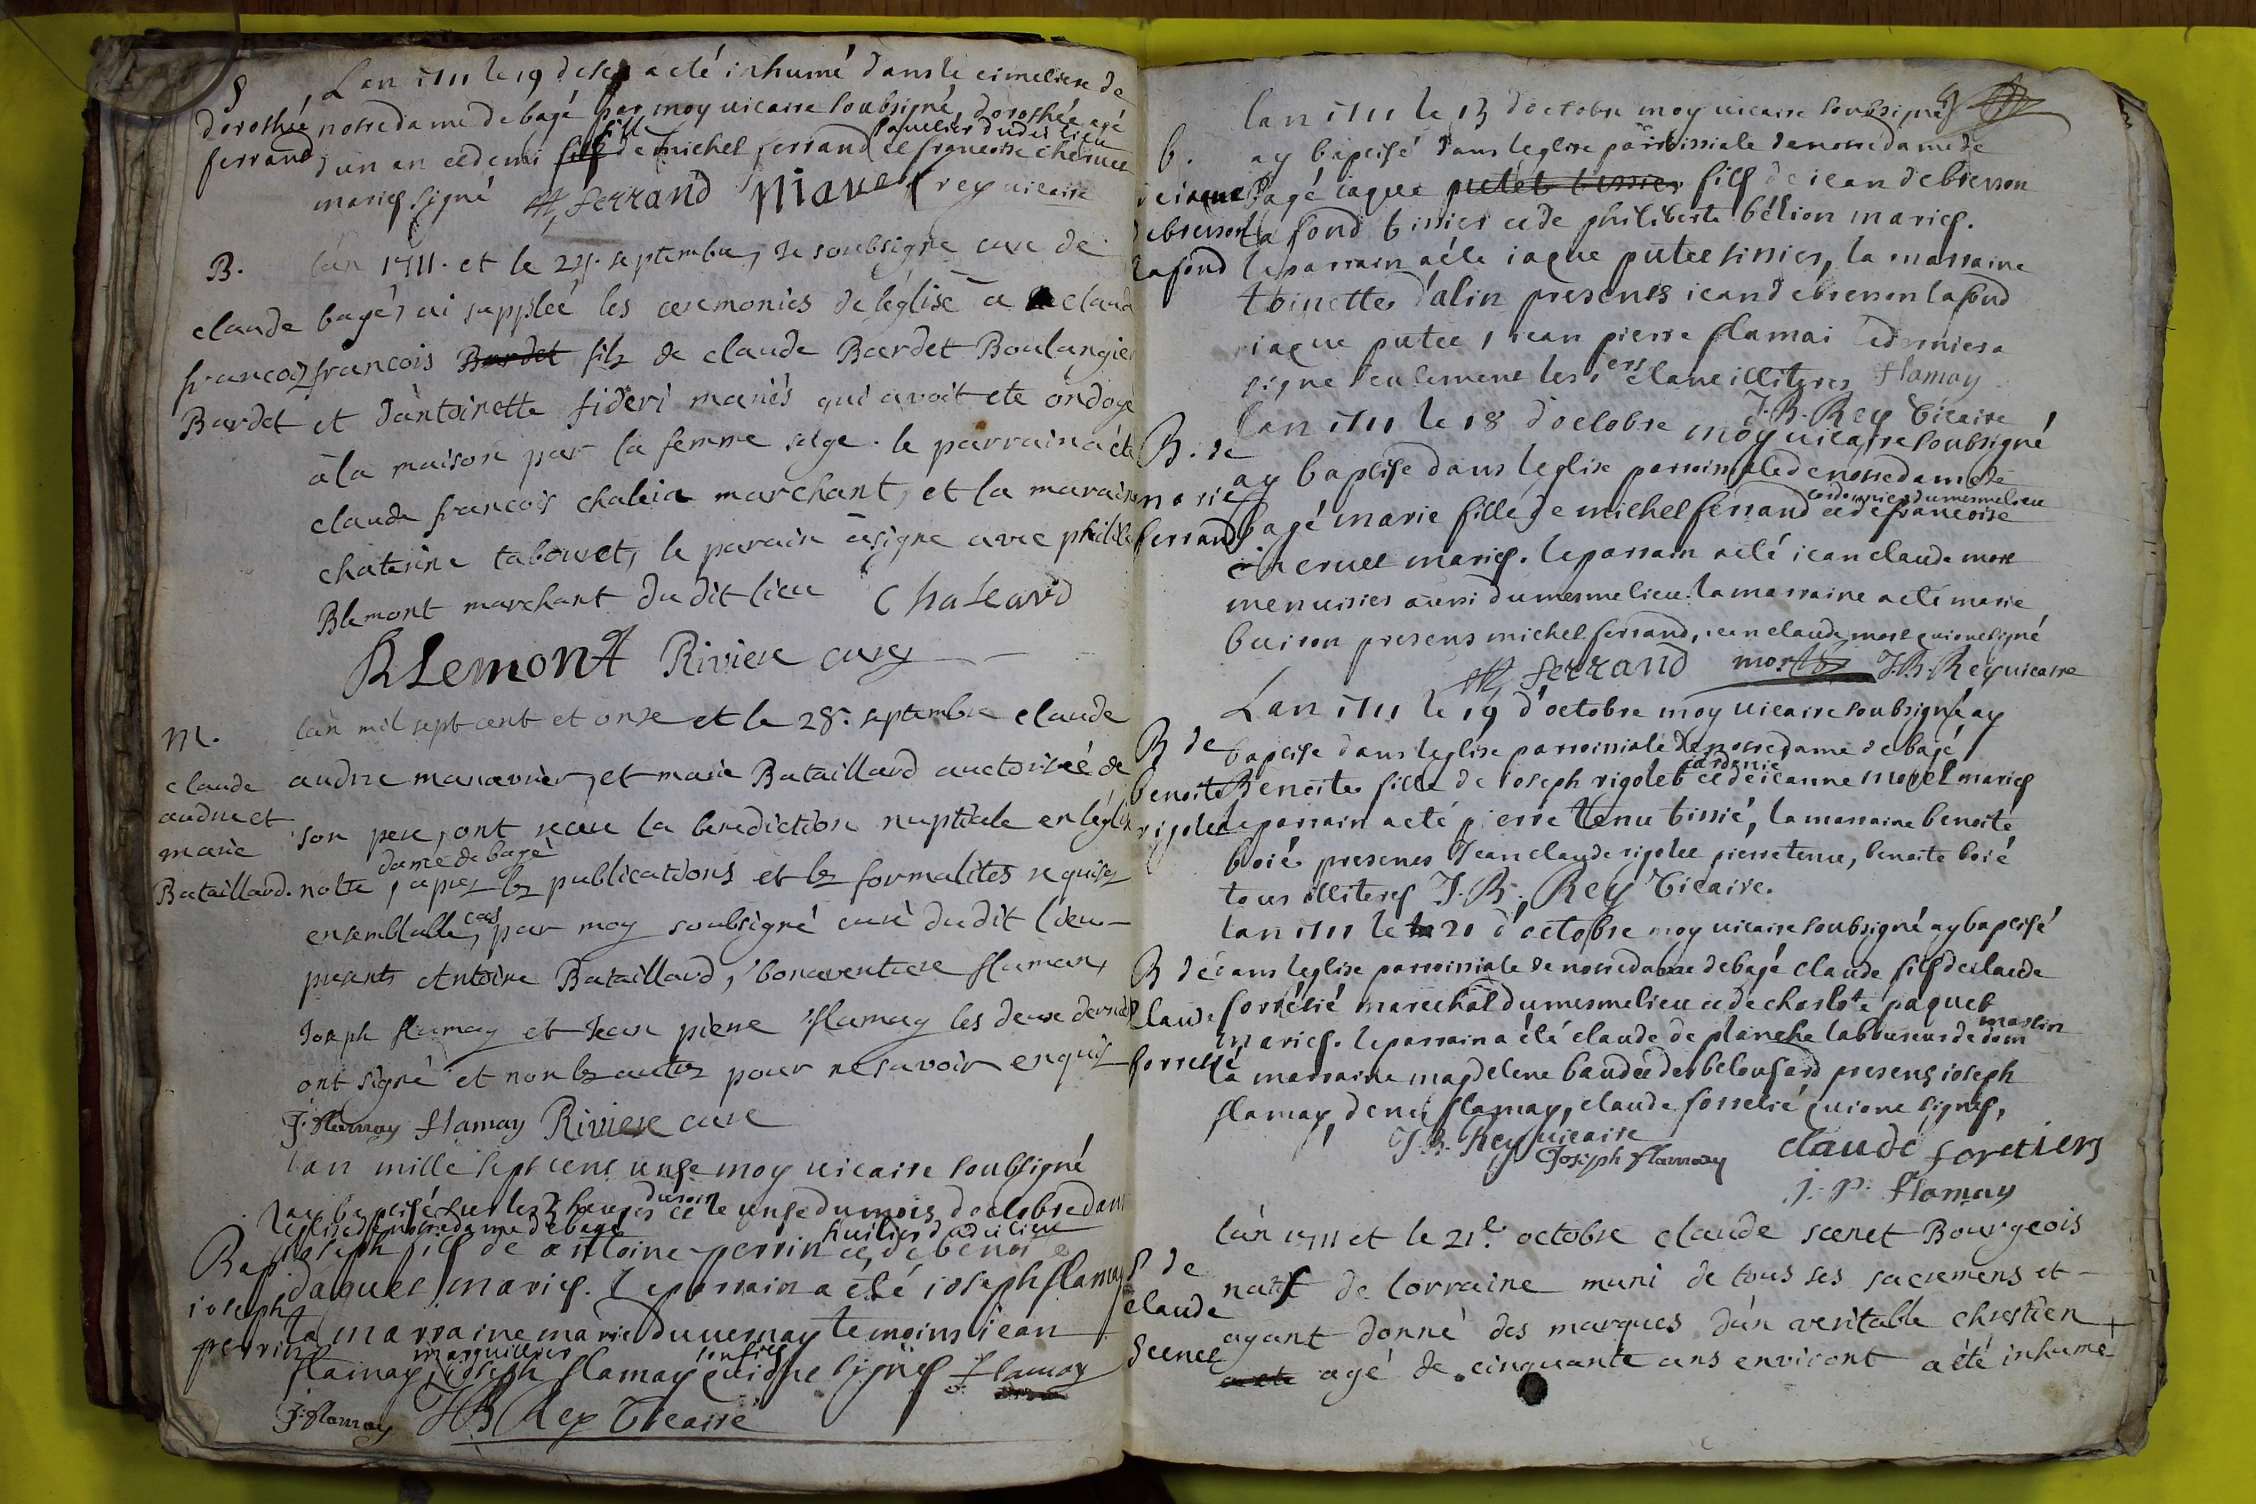 S
dorothée
ferrand
Lan 1711 le 19 de sep a eté inhumé dans le cimetiere de
nostre dame de bagé par moy vicaire soubsigné, dorothée agé
d'un an et demi fille de michel ferrand savetier dudit lieu et francoise cheruet
mariés signé M ferrand Niavet rey vicaire
B.
claude
francois
Bardet
l'an 1711. et le 24. septembre, Je soubsigné curé de
bagé ai supplée les ceremonies de l'église a claude
francois Bardet filz de claude Bardet Boulangier
et d'antoinette fideri mariés qui avoit ete ondoyé
a la maison par la femme sage. le parrain a été
claude francois chalvia marchant, et la maraine
chaterine tabouret, le parain a signe avec philib
Blemont marchant du dit lieu Chaleavid
BLemont Riviere curé
M.
claude
audrie et
marie
Bataillard.
l'an mil sept cent et onse et le 28. septembre claude
audrie manavrier, et marie Bataillard auctorisée de
son pere, ont receu la benediction nuptiale en l'église
notre dame de bagé, apres les publications et les formalites requises
en semblable cas, par moy soubsigné curé du dit lieu
presents Antoine Bataillard, bonaventure flamary
Joseph flamay et Jean pierre flamay les deux derniers
ont signé et non les autres pour ne savoir enquis
J. flamay flamay Riviere curé
Bap
ioseph
perrin
lan mille sept cent unse moy vicaire soubsigné
ay baptisé sur les 3 heures du soir et le unse du mois d'octobre dans
l'eglise de notre dame de bagé
ioseph fils de antoine perrin huilier dudit lieu et de benoite
daquet mariés. le parrain a eté ioseph flamay
la marraine marie duvernay temoins iean
flamay marguillier, ioseph flamay son fils qui ont signés flamay
J. flamay JB Rey Vicaire
9
b.
de iaque
debresson
lafond
lan 1711 le 13 d'octobre moy vicaire soubsigné
ay baptisé dans leglise parroissiale de nostre dame de
bagé iaque putet tissier fils de iean de bresson
la fond tissier et de philiberte bélion mariés.
le parrain a éte iaque putet tissier, la marraine
toinette d'alin presents iean debresson lafond
iaque putet, iean pierre flamai le dernier a
signe seulement les 1ers etant illiteres flamay
J.B. Rey Vicaire
B. de
marie
ferrand
lan 1711 le 18 d'octobre moy vicaire soubsigné
ay baptise dans leglise parroissiale de nostre dame de
bagé marie fille de michel ferrand cordonnier du mesme lieu et de francoise
cheruet mariés. le parrain a eté iean claude morel
menuisier aussi du mesme lieu. la marraine a eté marie
buison presens michel ferrand, iean claude morel qui ont signé
M ferrand morel J.B. Rey vicaire
B de
benoite
rigolet
Lan 1711 le 19 d'octobre moy vicaire soubsigné ay
baptise dans leglise parroissiale de nostre dame de bagé
Benoite fille de ioseph rigolet cardonnie et de ieanne morel mariés
le parrain a eté pierre tenu tissié, la marraine benoite
boié presents Jean claude rigolet pierre tenu, benoite boié
tous illiterés J. B. Rey Vicaire.
B de
claude
forretié
lan 1711 le 20 d'octobre moy vicaire soubsigné ay baptisé
dans leglise parroissiale de nostre dame de bagé claude fils de claude
forretié marechal du mesme lieu et de charlote paquet
mariés. le parrain a été claude de planche laboureur de dom martin
la marraine magdelene baudet des belousard presens ioseph
flamay, denis flamay, claude forretié qui ont signés,
J.B. Rey vicaire Joseph flamay claude foretiers
J. P. flamay
S de
claude
scenet
l'an 1711 et le 21e. octobre claude scenet Bourgeois
natif de lorraine muni de tous ses sacremens et
ayant donné des marques d'un veritable chrestien
agé de cinquante ans environt a été inhumé